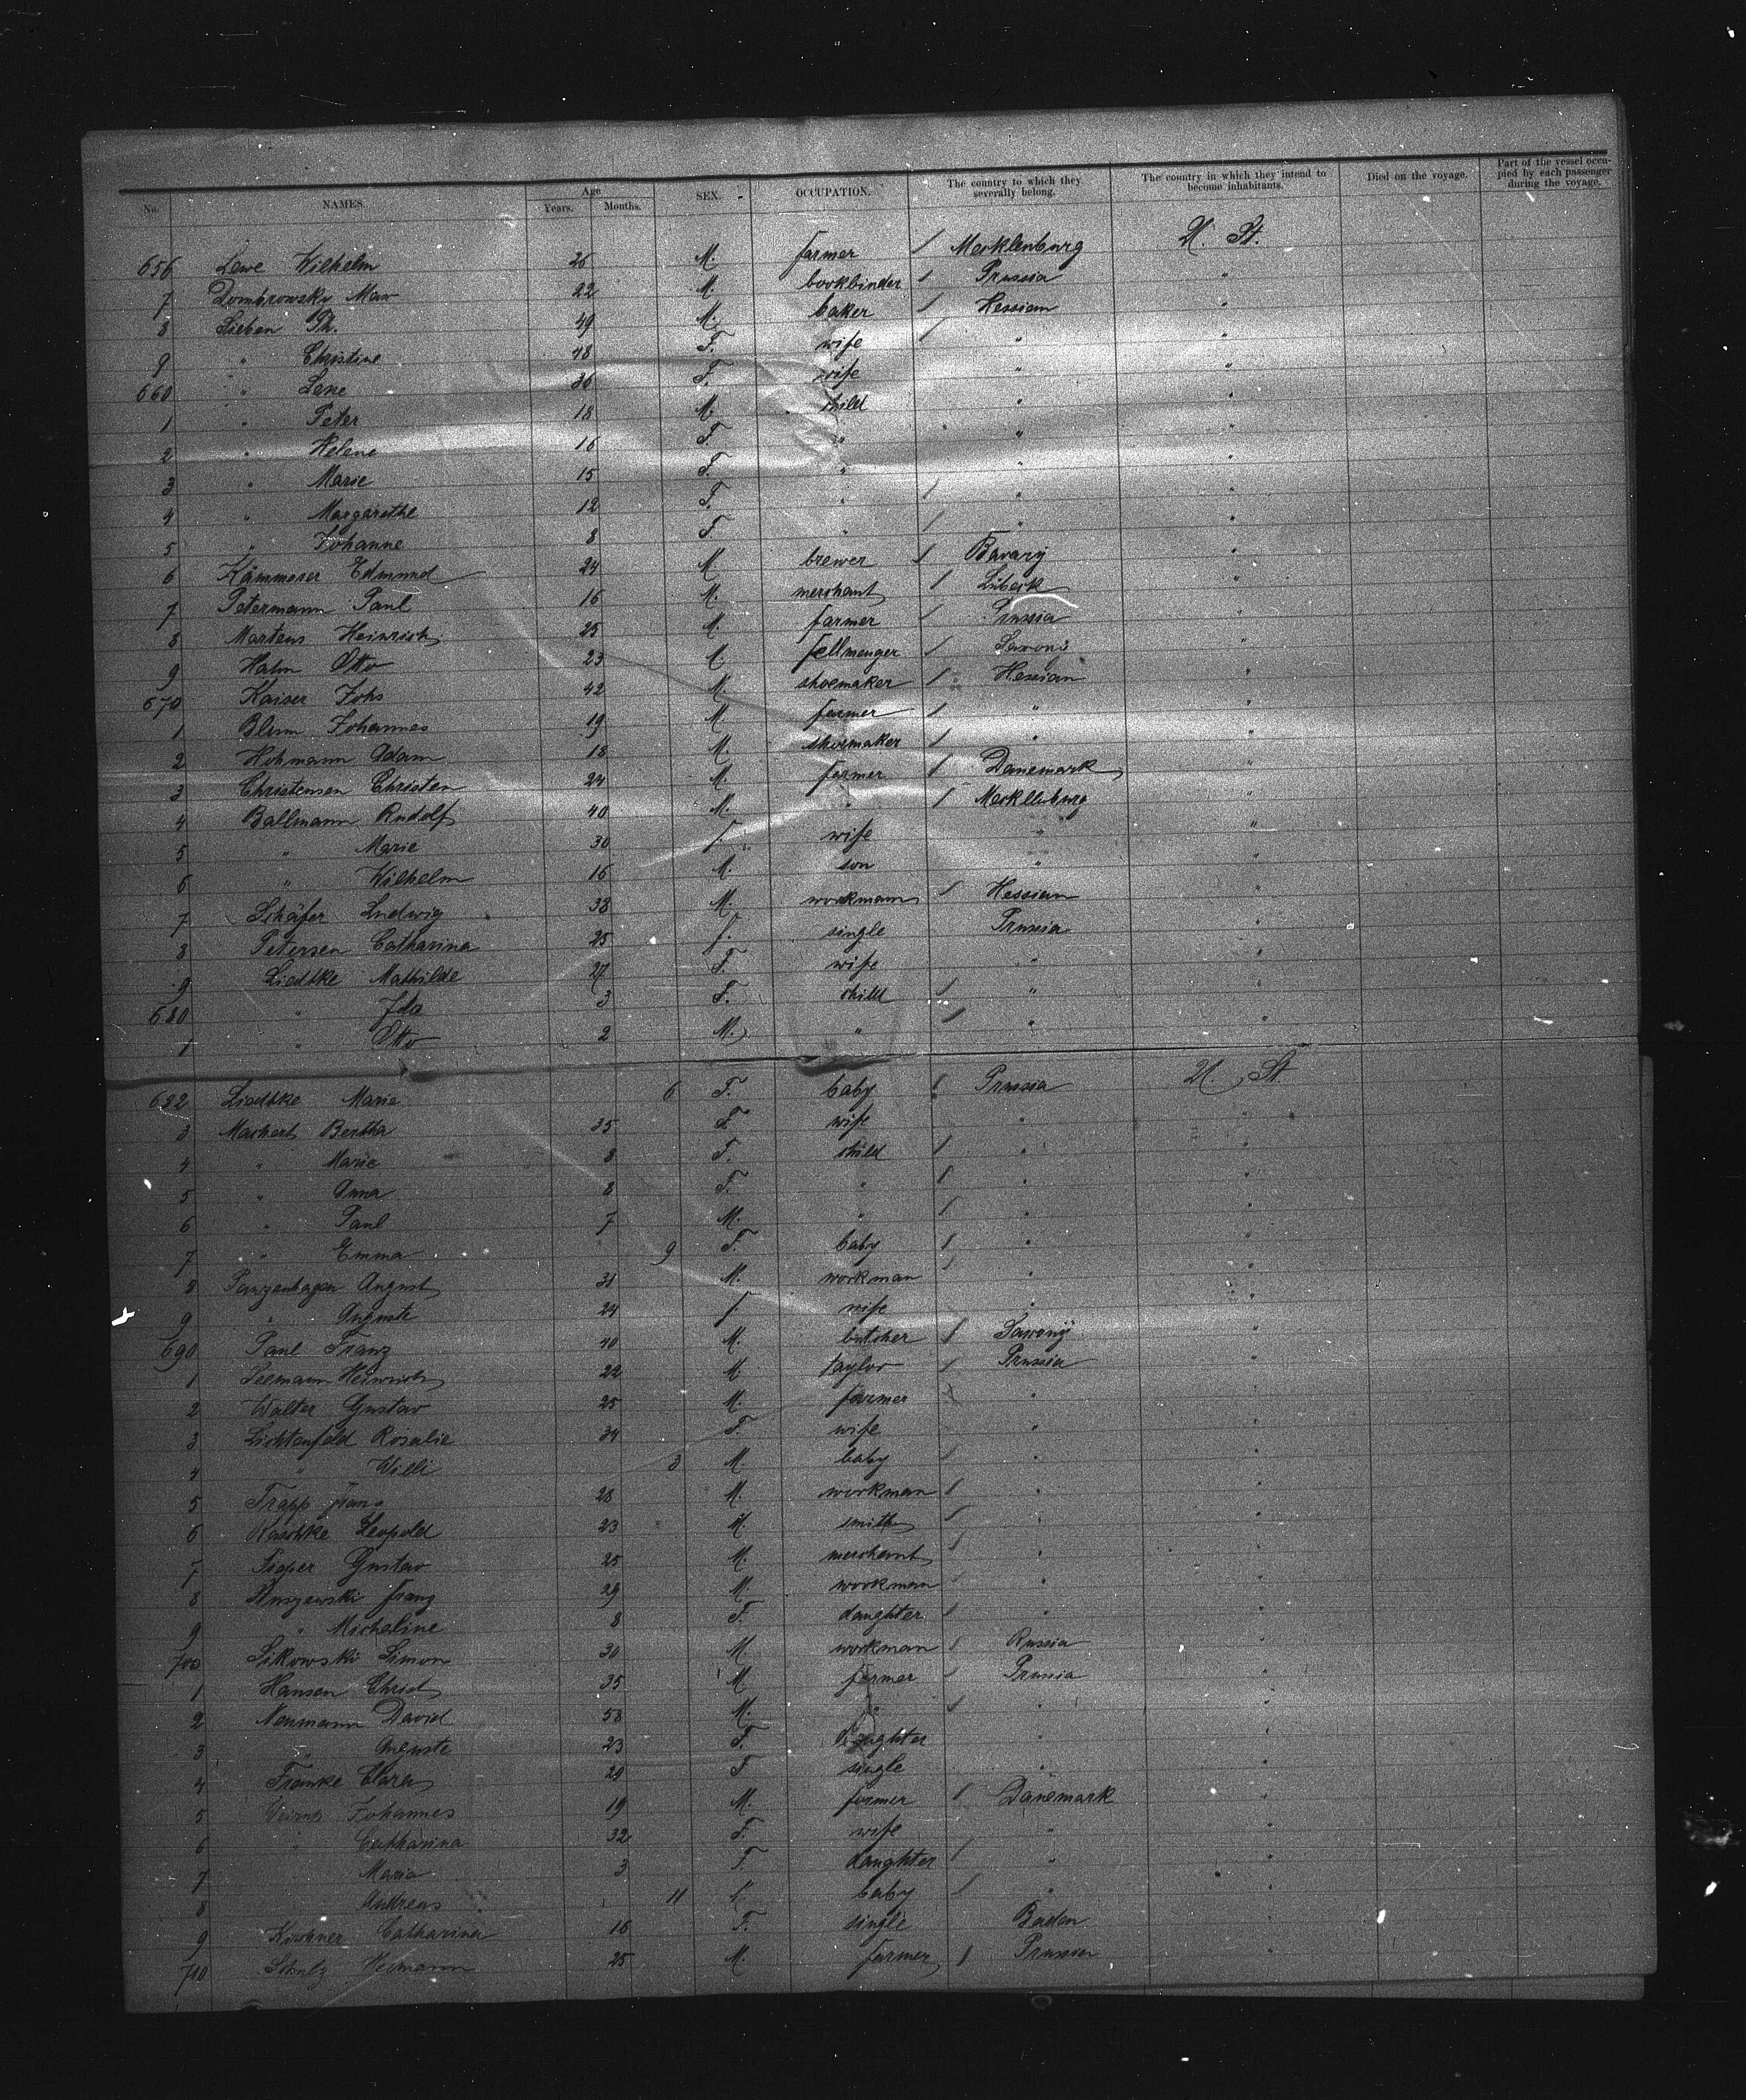 No. NAMES. Age Years. Months. SEX. OCCUPATION. The country to which they severally belong. The country in which they intend to become inhabitants. Died on the voyage. Part of the vessel occupied by each passenger during the voyage.
656 Lewe Wilhelm 26 M. farmer / Mecklenburg U. St.
7 Dombrowsky Max 22 M. bookbinder / Prussia "
8 Sieben Ph. 49 M. baker / Hessian "
9 " Christine 48 F. wife / " "
660 " Lene 36 F. wife " "
1 " Peter 18 M. child " "
2 " Helene 16 F. " " "
3 " Marie 15 F. " " "
4 " Margarethe 12 F. " / " "
5 " Johanne 8 F " / " "
6 Kämmerer Edmund 24 M brewer / Bavary "
7 Petermann Paul 16 M. merchant / Lübeck "
8 Martens Heinrich 25 M. farmer / Prussia "
9 Hahn Otto 23 M. fellmenger / "
670 Kaiser Johs 42 M. shoemaker / Hessian "
1 Blum Johannes 19 M farmer / " "
2 Hohmann Adam 18 M. shoemaker / " "
3 Christensen Christen 24 M. farmer / Danemark "
4 Ballmann Rudolf 40 M. " / Mecklenburg "
5 " Marie 30 f. wife " "
6 " Wilhelm 16 M. son " "
7 Schäfer Ludwig 38 M. workman / Hessian "
8 Petersen Catharina 25 f. single Prussia "
9 Liedtke Mathilde 27 F. wife " "
680 " Ida 3 F. child / " "
1 " Otto 2 M. " / " "
682 Liedtke Marie 6 F. baby / Prussia U. St.
3 Markert Bertha 35 F. wife " "
4 " Marie 8 F. child / " "
5 " Anna 8 F. " / " "
6 " Paul 7 M. " / " "
7 " Emma 9 F. baby / " "
8 Panzenhagen August 31 M. workman / " "
9 " Auguste 24 f. wife " "
690 Paul Franz 40 M. butcher / Saxony "
1 Seemann Heinrich 22 M taylor / Prussia "
2 Walter Gustav 25 M. farmer " "
3 Lichtenfeld Rosalie 34 F. wife " "
4 " Willi 3 M. baby / " "
5 Trapp Franz 28 M. workman / " "
6 Raschke Leopold 23 M. smith / " "
7 Pieper Gustav 25 M. merchant / " "
8 Franz 29 M. workman / " "
9 " Micheline 8 F. daughter / " "
700 Sikowski Simon 30 M. workman / Russia "
1 Hansen Christ 35 M farmer / Prussia "
2 Neumann David 58 M. " / " "
3 " Auguste 23 F. daughter " "
4 Franke Clara 29 F single " "
5 Johannes 19 M. farmer / Danemark "
6 " Catharina 32 F. wife " "
7 " Maria 3 F. daughter / " "
8 Andreas 11 baby / " "
9 Kirchner Catharina 16 F. single Baden "
710 Schulz Hermann 25 M. farmer / Prussia "